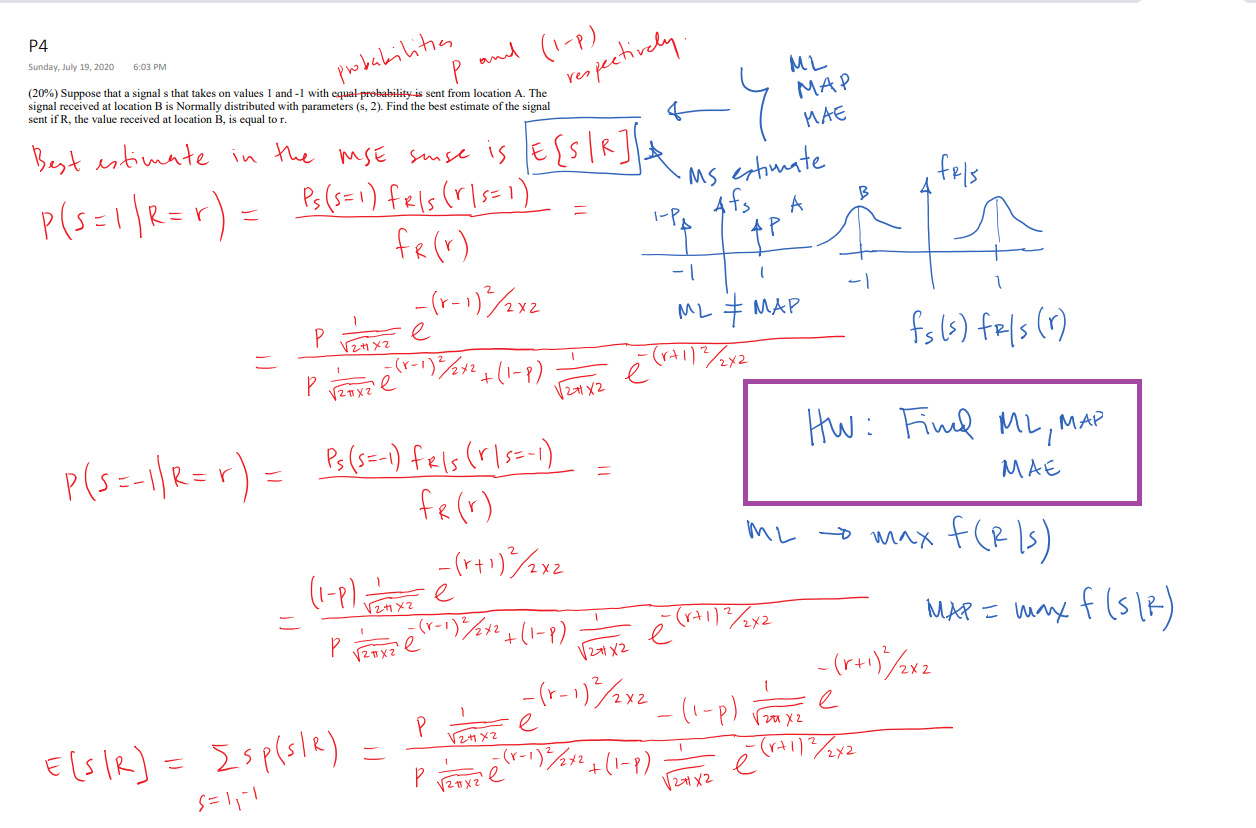 P4
Sunday, July 19, 2020 6:03 PM
probabilities p and (1-p) respectively.
(20%) Suppose that a signal s that takes on values 1 and -1 with equal probability is sent from location A. The
signal received at location B is Normally distributed with parameters (s, 2). Find the best estimate of the signal
sent if R, the value received at location B, is equal to r.
ML
MAP
MAE
Best estimate in the MSE sense is E{S|R]
MS estimate
P(S=1|R=r) = Ps(s=1) fR|s(r|s=1) / fR(r) =
1-P fs A P
-1 1
B fR|s
-1 1
ML ≠ MAP
fs(s) fR|s(r)
= P 1/√2π×2 e^-(r-1)²/2×2 / P 1/√2π×2 e^-(r-1)²/2×2 + (1-P) 1/√2π×2 e^-(r+1)²/2×2
HW: Find ML, MAP
MAE
P(S=-1|R=r) = Ps(s=-1) fR|s(r|s=-1) / fR(r) =
ML → max f(R|S)
= (1-P) 1/√2π×2 e^-(r+1)²/2×2 / P 1/√2π×2 e^-(r-1)²/2×2 + (1-P) 1/√2π×2 e^-(r+1)²/2×2
MAP = max f(S|R)
E[S|R] = Σ s p(s|R) = P 1/√2π×2 e^-(r-1)²/2×2 - (1-P) 1/√2π×2 e^-(r+1)²/2×2 / P 1/√2π×2 e^-(r-1)²/2×2 + (1-P) 1/√2π×2 e^-(r+1)²/2×2
s=1,-1